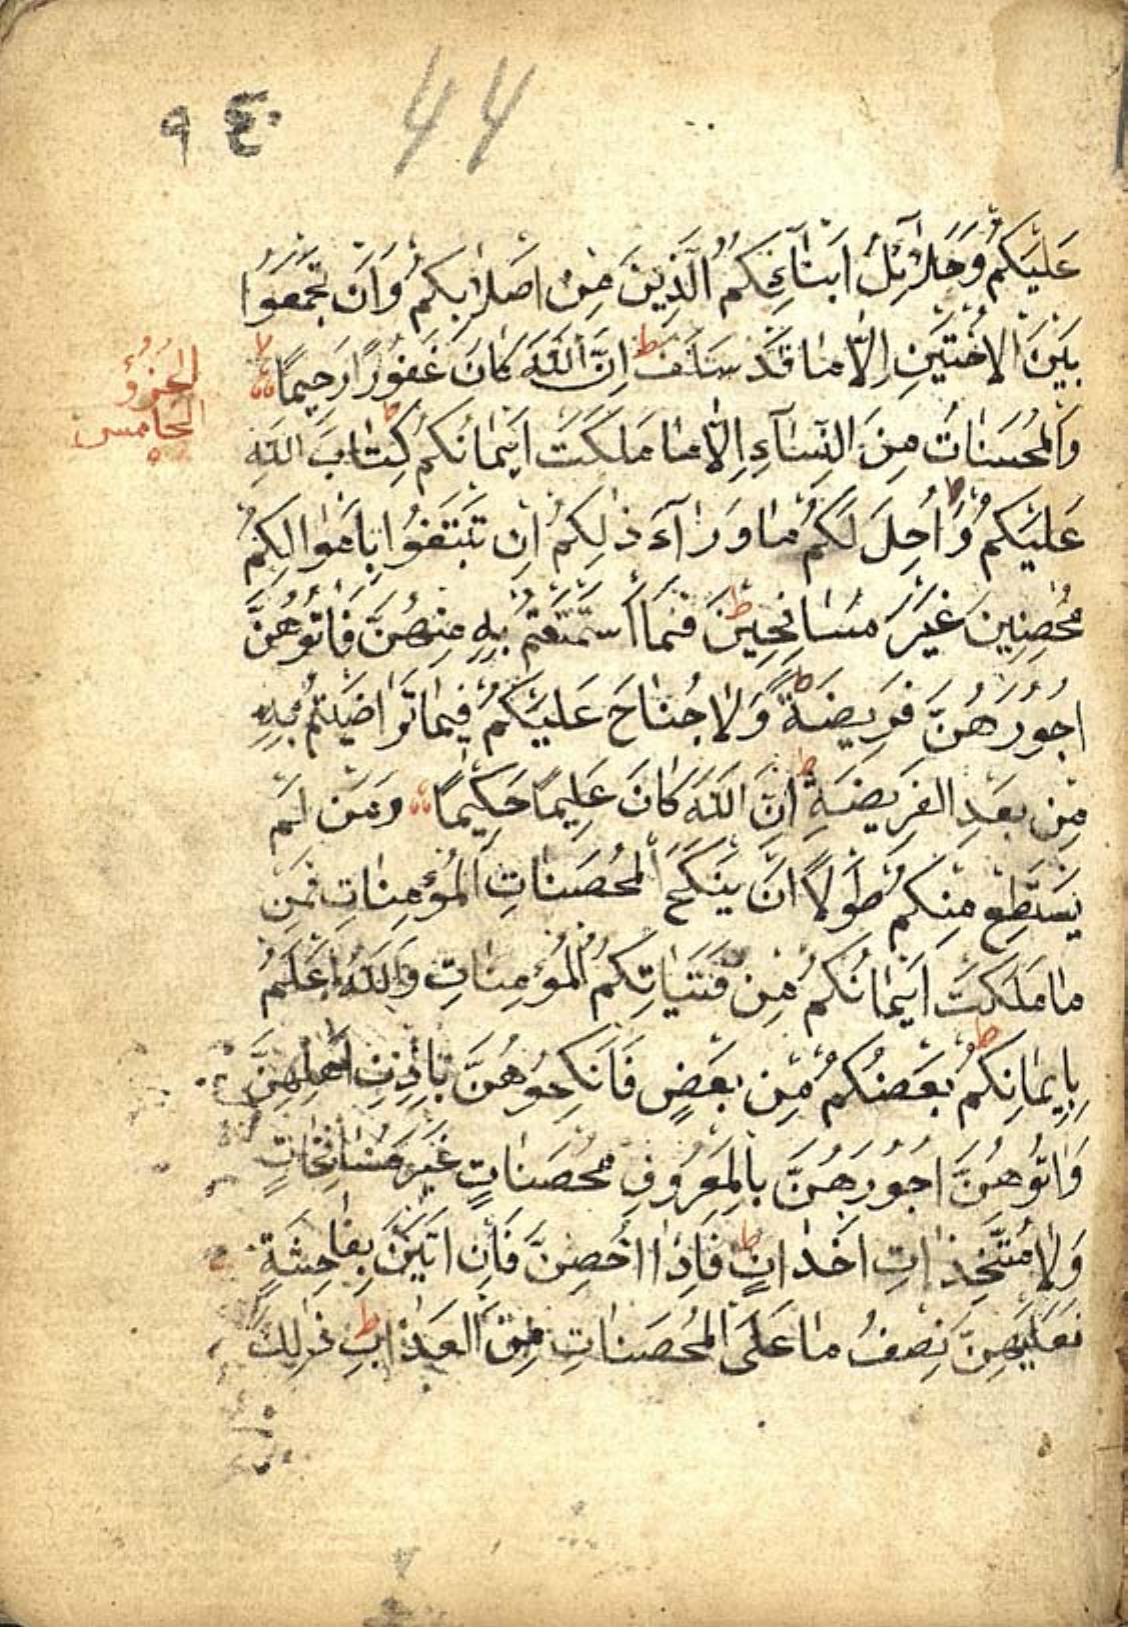 ٩٤
44
عَلَيْكُمْ وَحَلَائِلُ اَبْنَائِكُمُ الَّذِينَ مِنْ اَصْلَابِكُمْ وَاَنْ تَجْمَعُوا
بَيْنَ الْاُخْتَيْنِ اِلَّا مَا قَدْ سَلَفَ ط اِنَّ اللّٰهَ كَانَ غَفُورًا رَحِيمًا لا
الجزؤ
الخامس
وَالْمُحْسَنَاتُ مِنَ النِّسَآءِ اِلَّا مَا مَلَكَتْ اَيْمَانُكُمْ ط كِتَابَ اللّٰهِ
عَلَيْكُمْ ط وَاُحِلَ لَكُمْ مَا وَرَآءَ ذٰلِكُمْ اَنْ تَبْتَغُوا بِاَمْوَالِكُمْ
مُحْصِنِينَ غَيْرَ مُسَافِحِينَ ط فَمَا اسْتَمْتَعْتُمْ بِهِ مِنْهُنَّ فَاٰتُوهُنَّ
اُجُورَهُنَّ فَرِيضَةً ط وَلَا جُنَاحَ عَلَيْكُمْ فِيمَا تَرَاضَيْتُمْ بِهِ
مِنْ بَعْدِ الْفَرِيضَةِ ط اِنَّ اللّٰهَ كَانَ عَلِيمًا حَكِيمًا وَمَنْ لَمْ
يَسْتَطِعْ مِنْكُمْ طَوْلًا اَنْ يَنْكِحَ الْمُحْصَنَاتِ الْمُؤْمِنَاتِ فَمِنْ
مَا مَلَكَتْ اَيْمَانُكُمْ مِنْ فَتَيَاتِكُمُ الْمُؤْمِنَاتِ وَاللّٰهُ اَعْلَمُ
بِاِيمَانِكُمْ ط بَعْضُكُمْ مِنْ بَعْضٍ فَانْكِحُوهُنَّ بِاِذْنِ اَهْلِهِنَّ
وَاٰتُوهُنَّ اُجُورَهُنَّ بِالْمَعْرُوفِ مُحْصَنَاتٍ غَيْرَ مُسَافِحَاتٍ
وَلَا مُتَّخِذَاتِ اَخْدَانٍ ط فَاِذَا اُحْصِنَّ فَاِنْ اَتَيْنَ بِفَاحِشَةٍ
فَعَلَيْهِنَّ نِصْفُ مَا عَلَى الْمُحْصَنَاتِ مِنَ الْعَذَابِ ط ذٰلِكَ